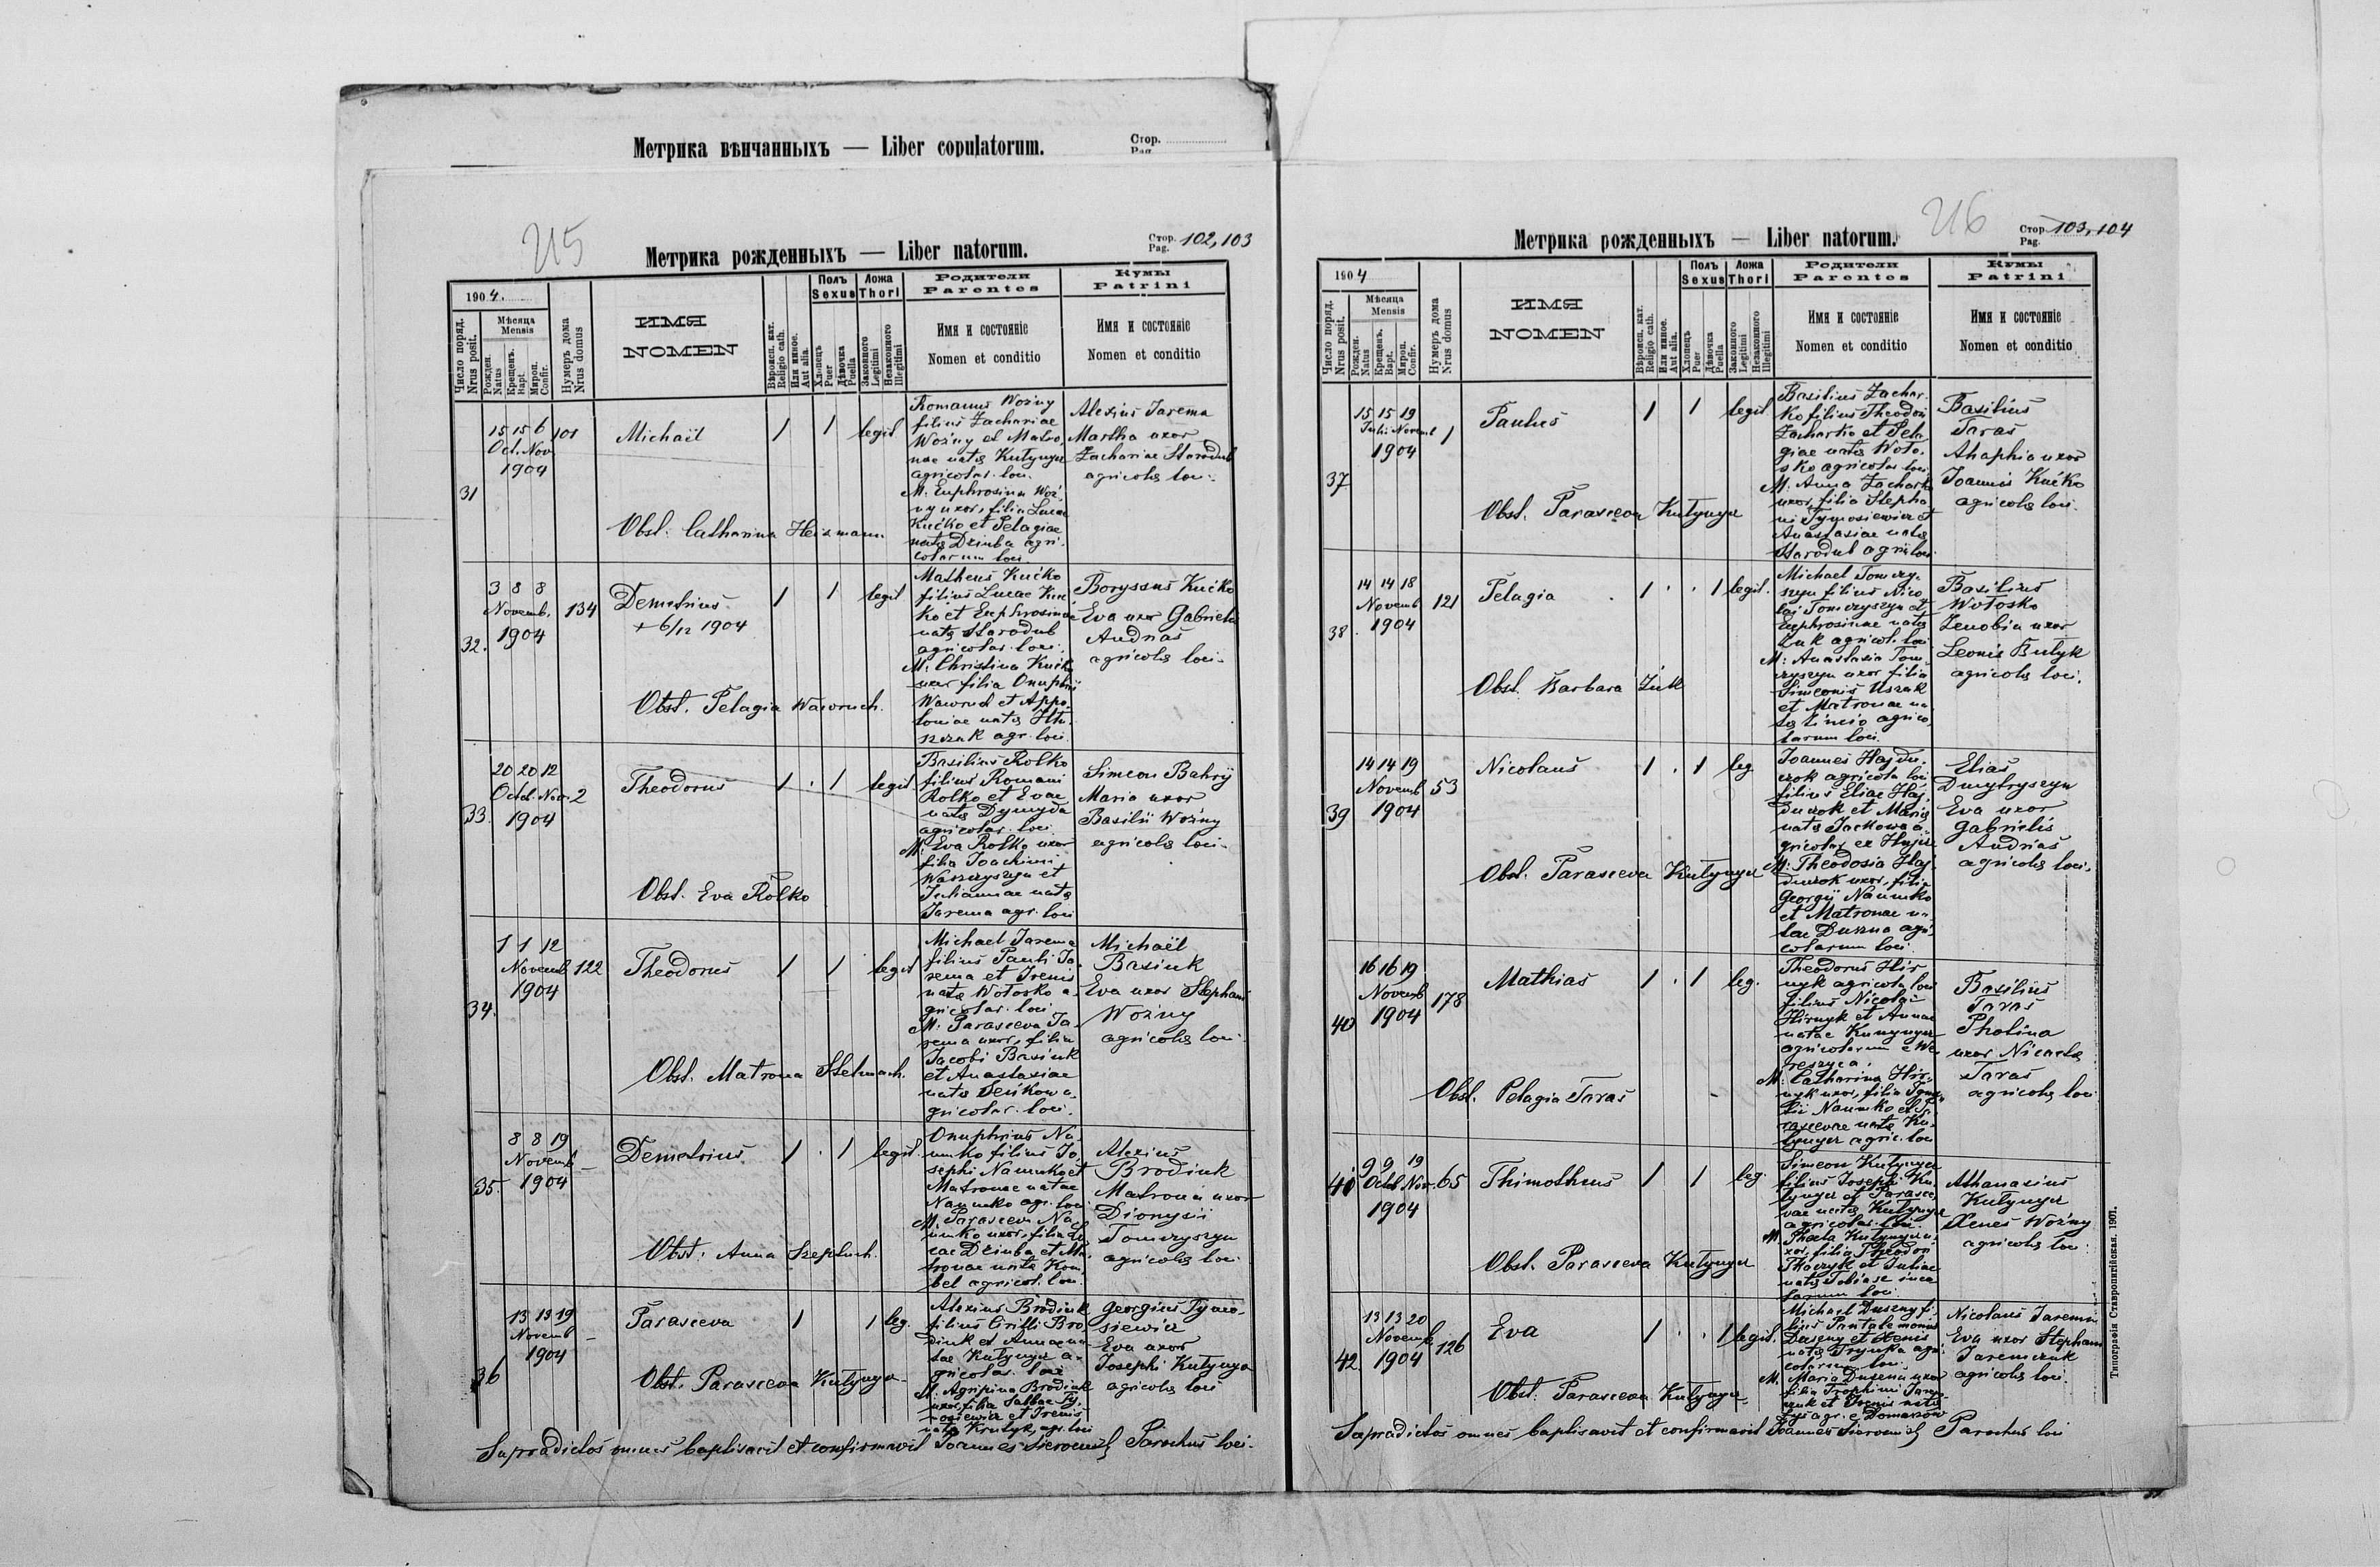 Метрика вѣнчанныхъ — Liber copulatorum.
Стор.
Pag.
215
Метрика рожденныхъ — Liber natorum.
Стор. Pag. 102, 103
1904.
Число поряд. Nrus posit.
Мѣсяца Mensis
Рожден. Natus
Крещенъ. Bapt.
Мироп. Confir.
Нумеръ дома Nrus domus
ИМЯ
NOMEN
Вѣроисп. кат. Religio cath.
Или иное. Aut alia.
Полъ Sexus
Хлопецъ Puer
Дѣвочка Puella
Ложа Thori
Законного Legitimi
Незаконного Illegitimi
Родители
Parentes
Имя и состояніе
Nomen et conditio
Кумы
Patrini
Имя и состояніе
Nomen et conditio
31
15 15 6
Oct. Nov.
1904
101
Michaël
1 1 legit
Obst. Catharina Heizmann
Romanus Woźny
filius Zachariae
Woźny et Matro
nae natę Kułynycz
agricolar. loci.
M. Euphrosina Woź
ny uxor, filia Lucae
Kućko et Pelagiae
natę Dziuba agri
colarum loci
Alexius Jarema
Martha uxor
Zachariae Starodub
agricolę loci.
32.
3 8 8
Novemb.
1904
134
Demetrius
+ 6/12 1904
1 1 legit
Obst. Pelagia Wawruch.
Matheus Kućko
filius Lucae Kuć
ko et Euphrosinae
natę Starodub
agricolar. loci.
M. Christina Kućko
uxor filia Onuphrij
et Appo
loniae natę
agr. loci.
Boryssus Kućko
Eva uxor Gabrielis
Andrias
agricolę loci.
33.
20 20 12
Octob. Nov.
1904
2
Theodorus
1 . 1 legit.
Obst. Eva Rolko
Basilius Rolko
filius Romani
Rolko et Evae
natę Dymyda
agricolar. loci
M. Eva Rolko uxor
filia Joachimi
Waszczyszyn et
Juliannae natę
Jarema agr. loci
Simeon Bahrij
Maria uxor
Basilii Woźny
agricolę loci.
34.
1 1 12
Novemb
1904
122
Theodorus
1 1 legit
Obst. Matrona Stelmach.
Michael Jarema
filius Pauli Ja
rema et Irenis
natę Wołosko a
gricolar. loci
M. Parasceva Ja
rema uxor, filia
Jacobi Basiuk
et Anastasiae
natę Seńkow a
gricolar. loci.
Michaël
Basiuk
Eva uxor Stephani
Woźny
agricolę loci.
35.
8 8 19
Novemb
1904
—
Demetrius
1 . 1 legit.
Obst. Anna Szeptuch.
Onuphrius Na
umko filius Jo
sephi Naumko et
Matronae natae
Naumko agr. loci
M. Parasceva Na
umko uxor, filia Lu
cae Dziuba et Ma
tronae natę Kom
bel agricol. loci.
Alexius
Brodiuk
Matrona uxor
Dionysii
Tomczyszyn
agricolę loci
36
13 13 19
Novemb
1904
—
Parasceva
1 1 leg.
Obst. Parasceva Kułynycz
Alexius Brodiuk
filius Cirilli Bro
diuk et Annae na
tae Kułynycz a
gricolar. loci
M. Agripina Brodiuk
uxor, filia Sabbae Ty
mosiewicz et Irenis
natę Krutyk, agr. loci
Georgius Tymo
siewicz
Eva uxor
Josephi Kułynycz
agricolę loci
Supradictos omnes baptisavit et confirmavit Joannes Parochus loci.
216
Метрика рожденныхъ — Liber natorum.
Стор. Pag. 103, 104
1904
Число поряд. Nrus posit.
Мѣсяца Mensis
Рожден. Natus
Крещенъ. Bapt.
Мироп. Confir.
Нумеръ дома Nrus domus
ИМЯ
NOMEN
Вѣроисп. кат. Religio cath.
Или иное. Aut alia.
Полъ Sexus
Хлопецъ Puer
Дѣвочка Puella
Ложа Thori
Законного Legitimi
Незаконного Illegitimi
Родители
Parentes
Имя и состояніе
Nomen et conditio
Кумы
Patrini
Имя и состояніе
Nomen et conditio
37
15 15 19
Julii Novemb
1904
1
Paulus
1 1 legit
Obst. Parasceva Kułynycz
Basilius Zachar
ko filius Theodori
Zacharko et Pela
giae natę Woło
sko agricolar. loci
M. Anna Zacharko
uxor, filia Stepha
ni Tymosiewicz et
Anastasiae natę
Starodub agr. loci
Basilius
Taras
Ahaphia uxor
Joannis Kućko
agricolę loci.
38.
14 14 18
Novemb
1904
121
Pelagia
1 . . 1 legit.
Obst. Barbara Żuk
Michael Tomczy
szyn filius Nico
lai Tomczyszyn et
Euphrosinae natę
Żuk agricol. loci
M. Anastasia Tom
czyszyn uxor filia
Simeonis Uszak
et Matronae na
agrico
larum loci.
Basilius
Wołosko
Zenobia uxor
Leonis Butyk
agricolę loci.
39
14 14 19
Novemb
1904
53
Nicolaus
1 . 1 leg
Obst. Parasceva Kułynycz
Joannes Hajdu
czok agricola loci
filius Eliae Haj
duczok et Marię
natę Jackowa a
gricolar ex
M. Theodosia Haj
duczok uxor, filia
Georgij Naumko
et Matronae na
tae Duszna agri
colarum loci
Elias
Dmytryszyn
Eva uxor
Gabrielis
Andrias
agricolę loci.
40
16 16 19
Novemb
1904
178
Mathias
1 . 1 leg.
Obst. Pelagia Taras
Theodorus Hir
nyk agricola loci
filius Nicolai
Hirnyk et Annae
natae Kunynycz
agricolarum e We
reszyca.
M. Catharina Hir
nyk uxor, filia
Naumko et Pa
rascevae natę Ku
łynycz agric. loci
Basilius
Taras
Photina
uxor Nicetę
Taras
agricolę loci
41
9 9 19
Octob Nov.
1904
65
Thimotheus
1 1 leg.
Obst. Parasceva Kułynycz
Simeon Kułynycz
filius Josephi Ku
łynycz et Parasce
vae natę Kułynycz
agricolar. loci.
M. Thecla Kułynycz u
xor, filia Theodori
Tkaczyk et Juliae
natę Tobiasz inco
larum loci
Athanasius
Kułynycz
Xenes Woźny
agricolę loci.
42.
13 13 20
Novemb
1904
126
Eva
1 . . 1 legit.
Obst. Parasceva Kułynycz
Michael Duszny fi
lius Pantalemonis
Duszny et Xenis
natę Trynka agri
colarum loci.
M. Maria Duszna uxor
filia Trophimi Jarem
czuk et Irenis natę
agr. e Domaszów
Nicolaus Jarema
Eva uxor Stephani
Jaremczuk
agricolę loci.
Supradictos omnes baptisavit et confirmavit Joannes Parochus loci
Типографія Ставропигійская. 1901.